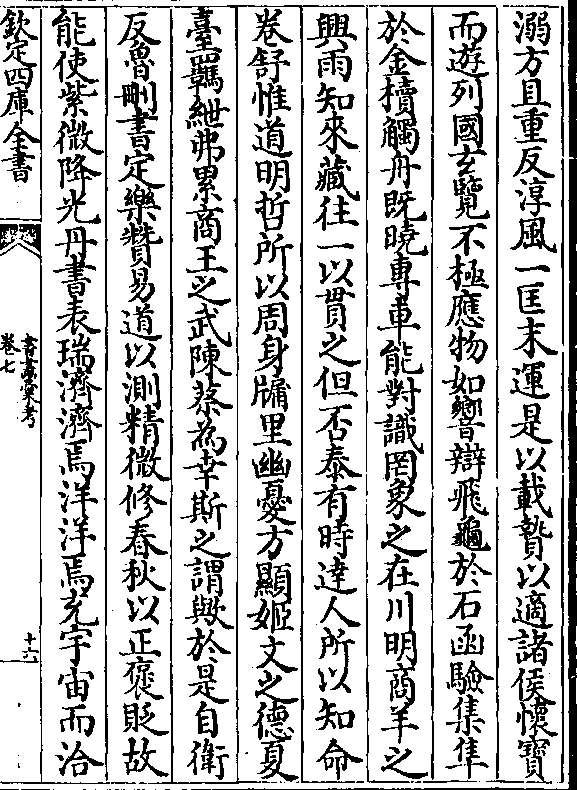 溺方且重反淳風一匡末運是以載贄以適諸侯懷寶
而遊列國玄覽不極應物如響辯飛龜於石函驗集隼
於金櫝觸舟既曉專車能對識罔象之在川明商羊之
興雨知來藏往一以貫之但否泰有時達人所以知命
卷舒惟道明哲所以周身牖里幽憂方顯姬文之德夏
臺羈紲弗累商王之武陳蔡為幸斯之謂歟於是自衛
反魯刪書定樂贊易道以測精微修春秋以正褒貶故
能使紫微降光丹書表瑞濟濟焉洋洋焉充宇宙而洽
欽定四庫全書
書畫彙考
卷七
十六